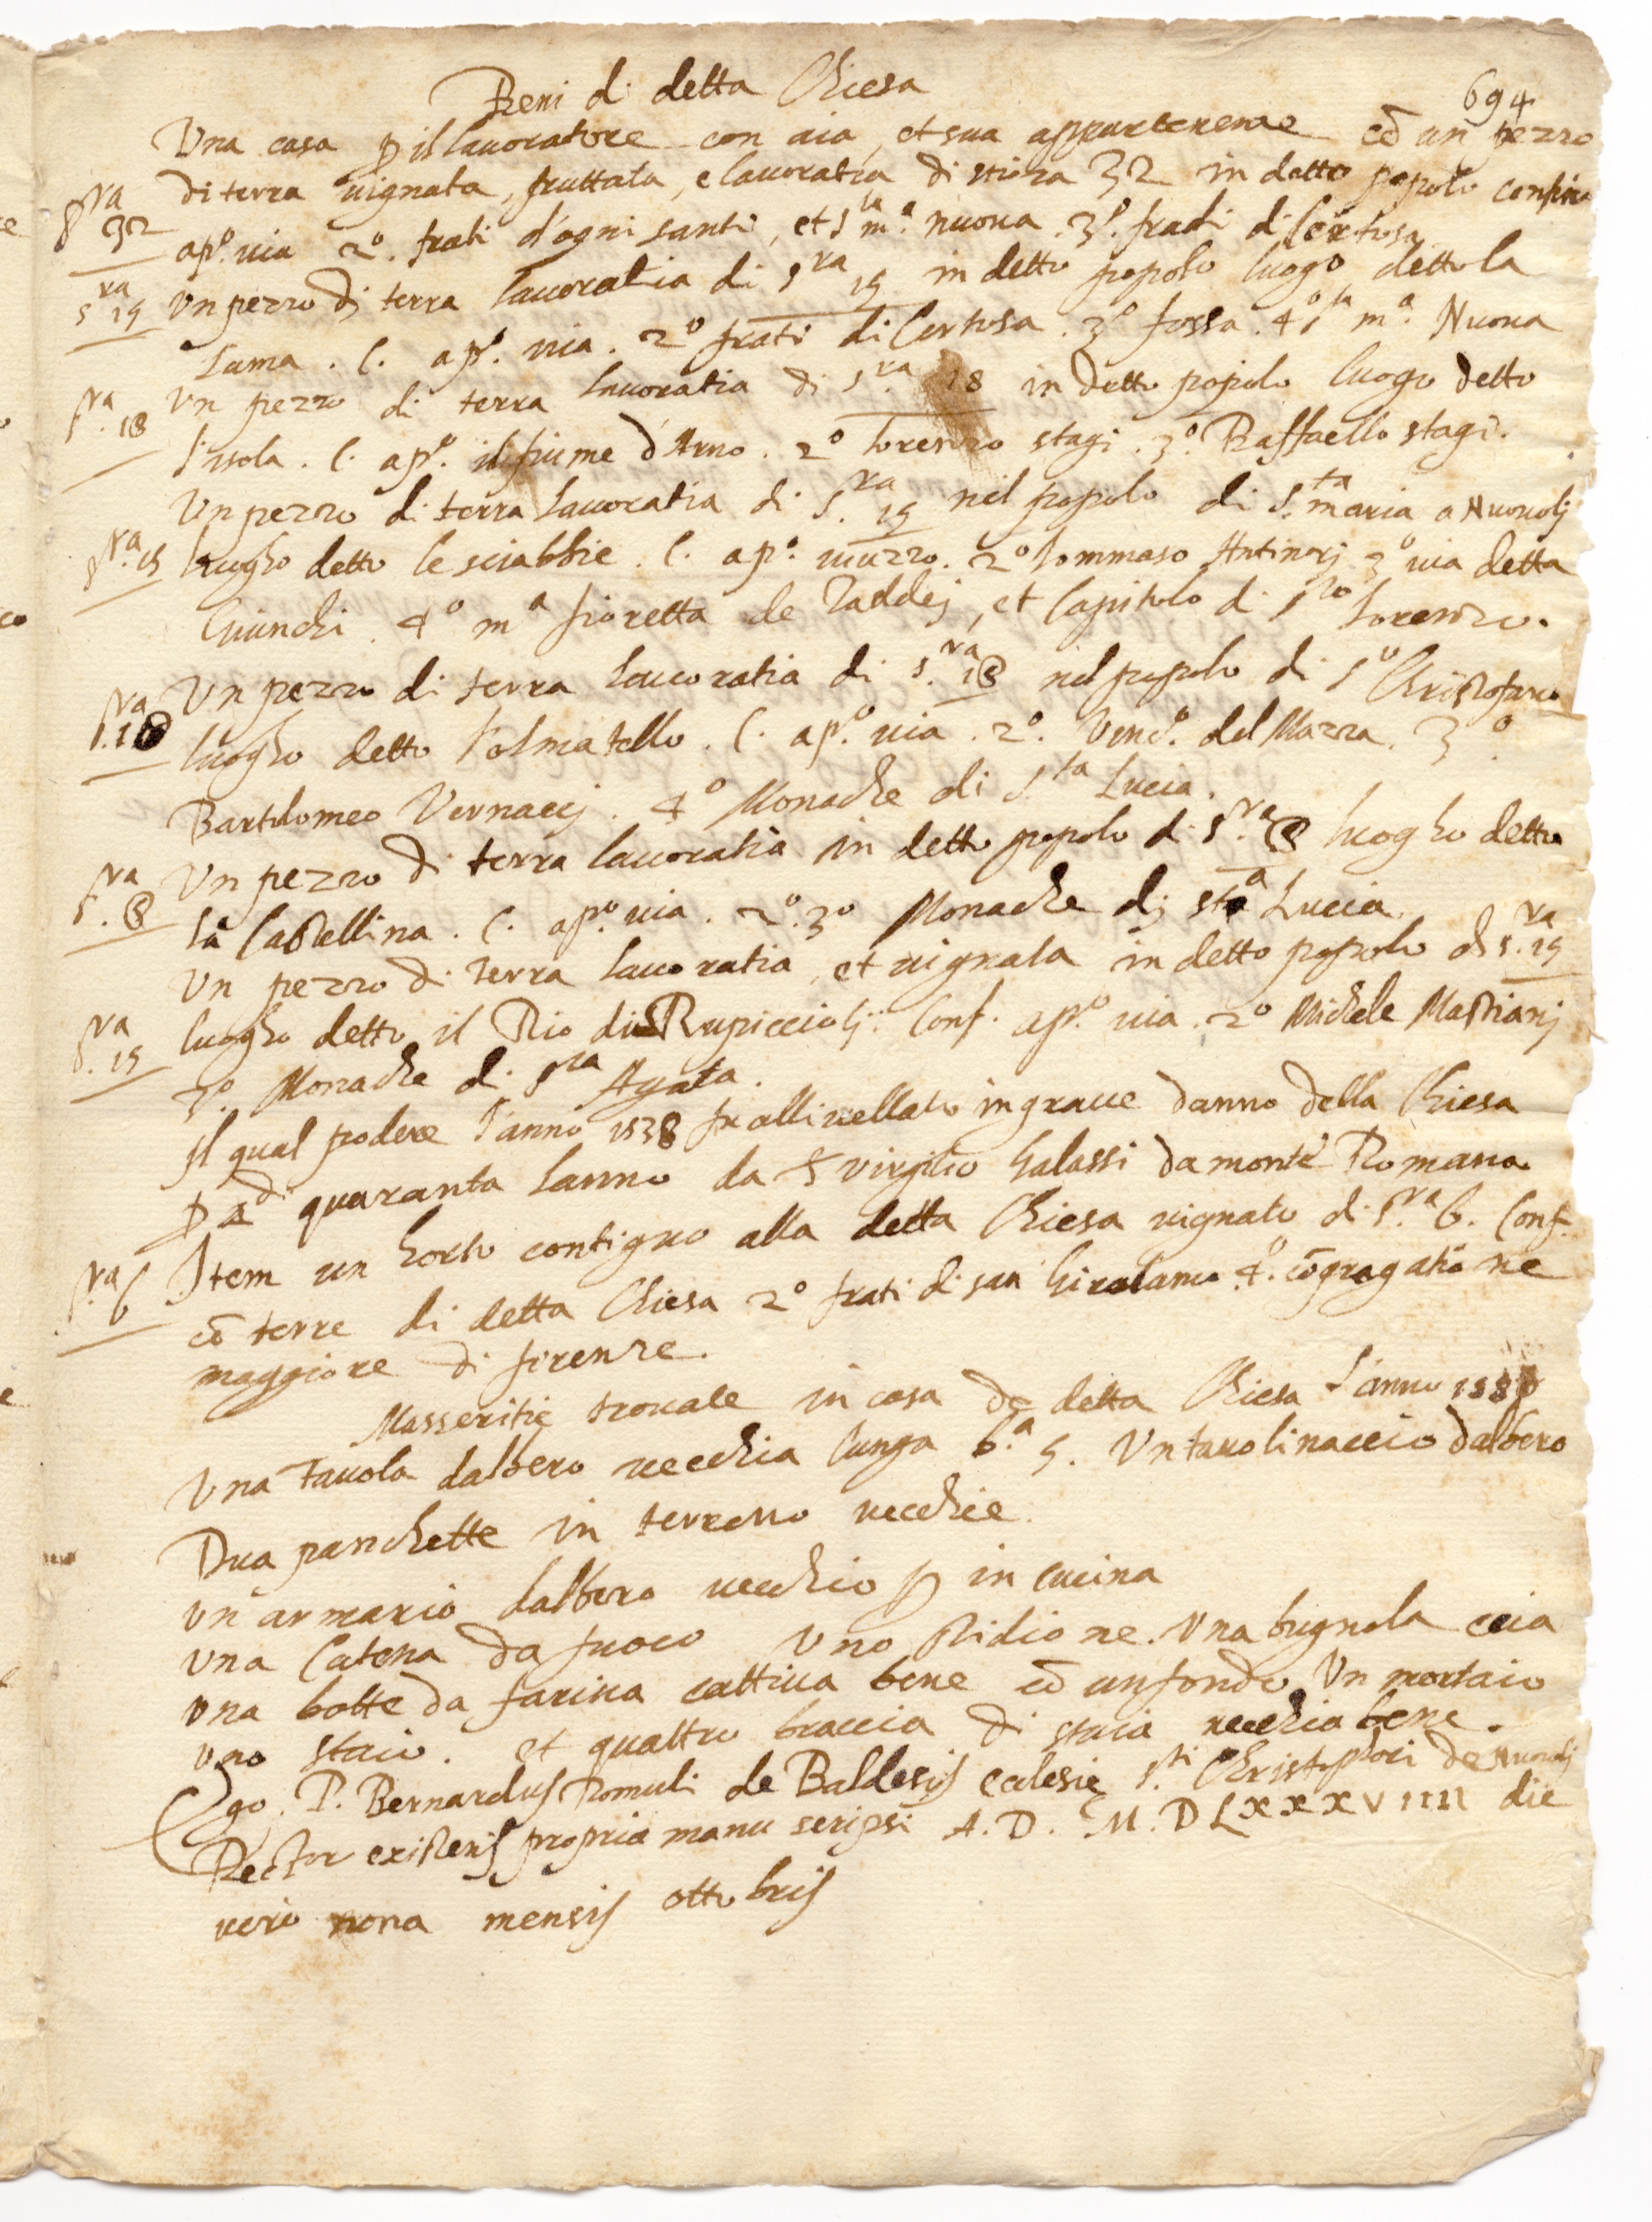 694
Beni di detta Chiesa
Una casa p il lauoratore con aia, et sua appartenenze cō un pezzo
sra 32 di terra uignata, fruttata, e lauoratia di stiora 32 in detto popolo confina
apo. uia 2o. frati d'ogni santi, et Sta ma. nuoua. 3o. frati di Certosa
sra 15 Un pezzo di terra lauoratia di sra 15 in detto popolo luogo detto la
Lama. C. apo. uia. 2o frati di Certosa. 3o fossa. 4o Sta ma. Nuoua
sra. 18 Un pezzo di terra lauoratia di sra. 18 in detto popolo luogo detto
l'isola. C. apo. il fiume d'Arno. 2o Lorenzo stagi. 3o. Raffaello stagi.
Un pezzo di terra lauoratia di sra. 15 nel popolo di S.ta maria a Nuouolj
sra. 15 luogho detto le sciabbie. C. apo. uiuzzo. 2o Tommaso Antinorj 3o uia detta
Giunchi. 4o ma fioretta de Taddej, et Capitolo di Sto Lorenzo.
Un pezzo di terra lauoratia di sra. 18 nel popolo di So Christofano
sra. 18 luogho detto l'olmatello. C. apo. uia. 2o. Vinco. del Mazza. 3o.
Bartolomeo Vernaccj. 4o Monache di S.ta Lucia.
sra. 8 Un pezzo di terra lauoratia in detto popolo di sra. 8 luogho detto
la Castellina. C. apo. uia. 2o. 3o Monache dj sta Lucia.
Un pezzo di terra lauoratia, et uignata in detto popolo di sra. 15
sra. 15 luogho detto il Rio di Rupicciolj: Conf. apo. uia. 2o Michele Mastianj
3o. Monache di Sta Agata.
Il qual podere l'anno 1538 fu alliuellato in graue danno della Chiesa
p di quaranta l'anno da S Virgilio Galassi da monte Romano
sra. 6 Item un horto contiguo alla detta Chiesa uignato di sra. 6. Conf.
cō terre di detta Chiesa 2o frati di san Girolamo 4o. cōgregatione
maggiore di firenze.
Masseritie trouate in casa de detta Chiesa l'anno
Una Tauola dalbero uecchia lunga b.a 5. Un tauolinaccio dalbero
Dua panchette in terreno uecchie.
Un armario dalbero uecchio p in cucina
Una Catena da fuoco Uno stidione. Una
una botte da farina cattiua bene cō un fondo Un mortaio
uno staio. et quattro braccia di stuia uecchia bene.
Ego. P. Bernardus Romuli de Baldesijs eclesie S.ti Christophori de Nuouolj
Rector existens propria manu scripsi A. D. M. D LXXXVIIII die
uero nona mensis ottobris